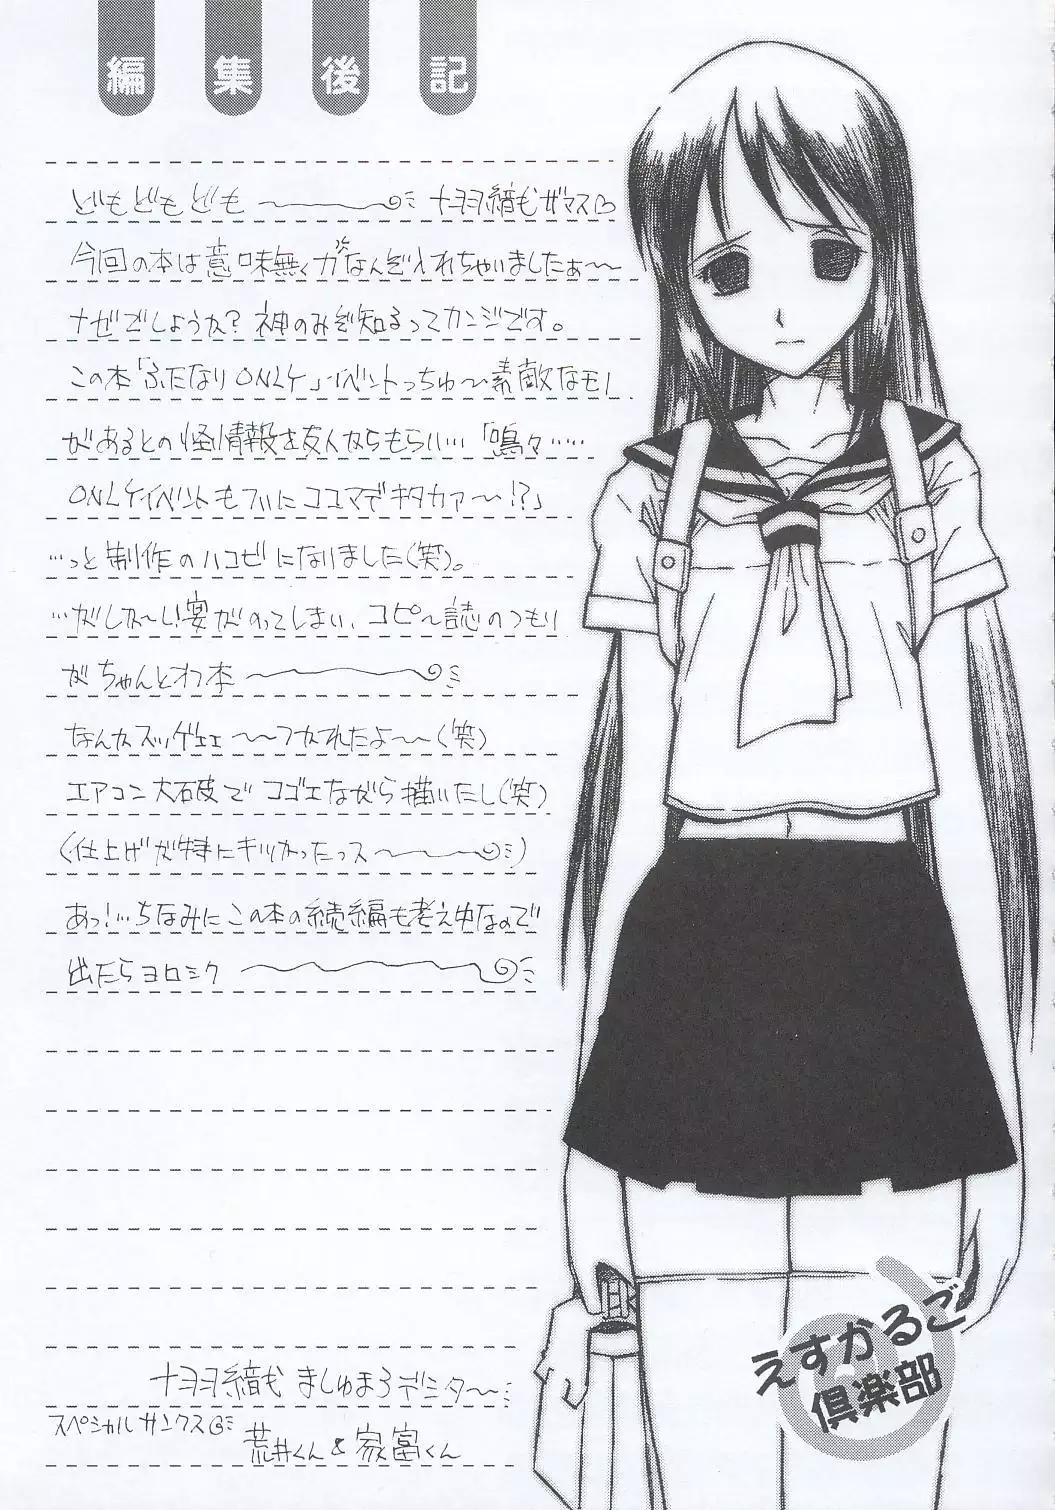 編集後記
どもどもども〜 ナヨヲ織弋ザマス
今回の本は意味無くガなんぞ入れちゃいましたぁ〜
ナゼでしょうか？ 神のみぞ知るってカンジです。
この本「ふたなりONLY」イベントっちゅ〜素敵なモノ
があるとの怪情報を友人からもらい…「嗚々……
ONLYイベントもついにココマデキタカァ〜!?」
…っと制作のハコビになりました（笑）。
…がしか〜し!宴がのってしまい、コピ〜誌のつもり
がちゃんとオフ本〜
なんかスッゲェェ〜つかれたよ〜（笑）
エアコン大破でコゴエながら描いたし（笑）
（仕上げが特にキツかったっス〜）
あっ!…ちなみにこの本の続編も考え中なので
出たらヨロシク〜
ましゅまろデニタ〜
スペシャルサンクス
荒井くん & 家富くん
えすかるご
倶楽部